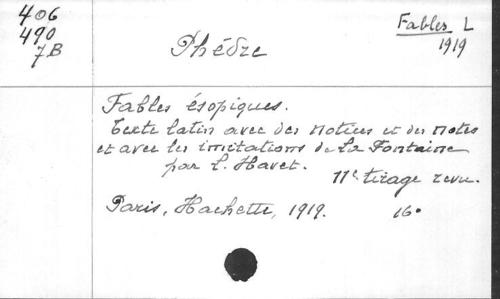 406
490
7B
Phédre
Fables L
1919
Fables ésopiques.
Texte latin avec des notices et des notes
et avec les imitations de La Fontaine
par L. Havet.
11e tirage revu.
Paris, Hachette, 1919. 16°